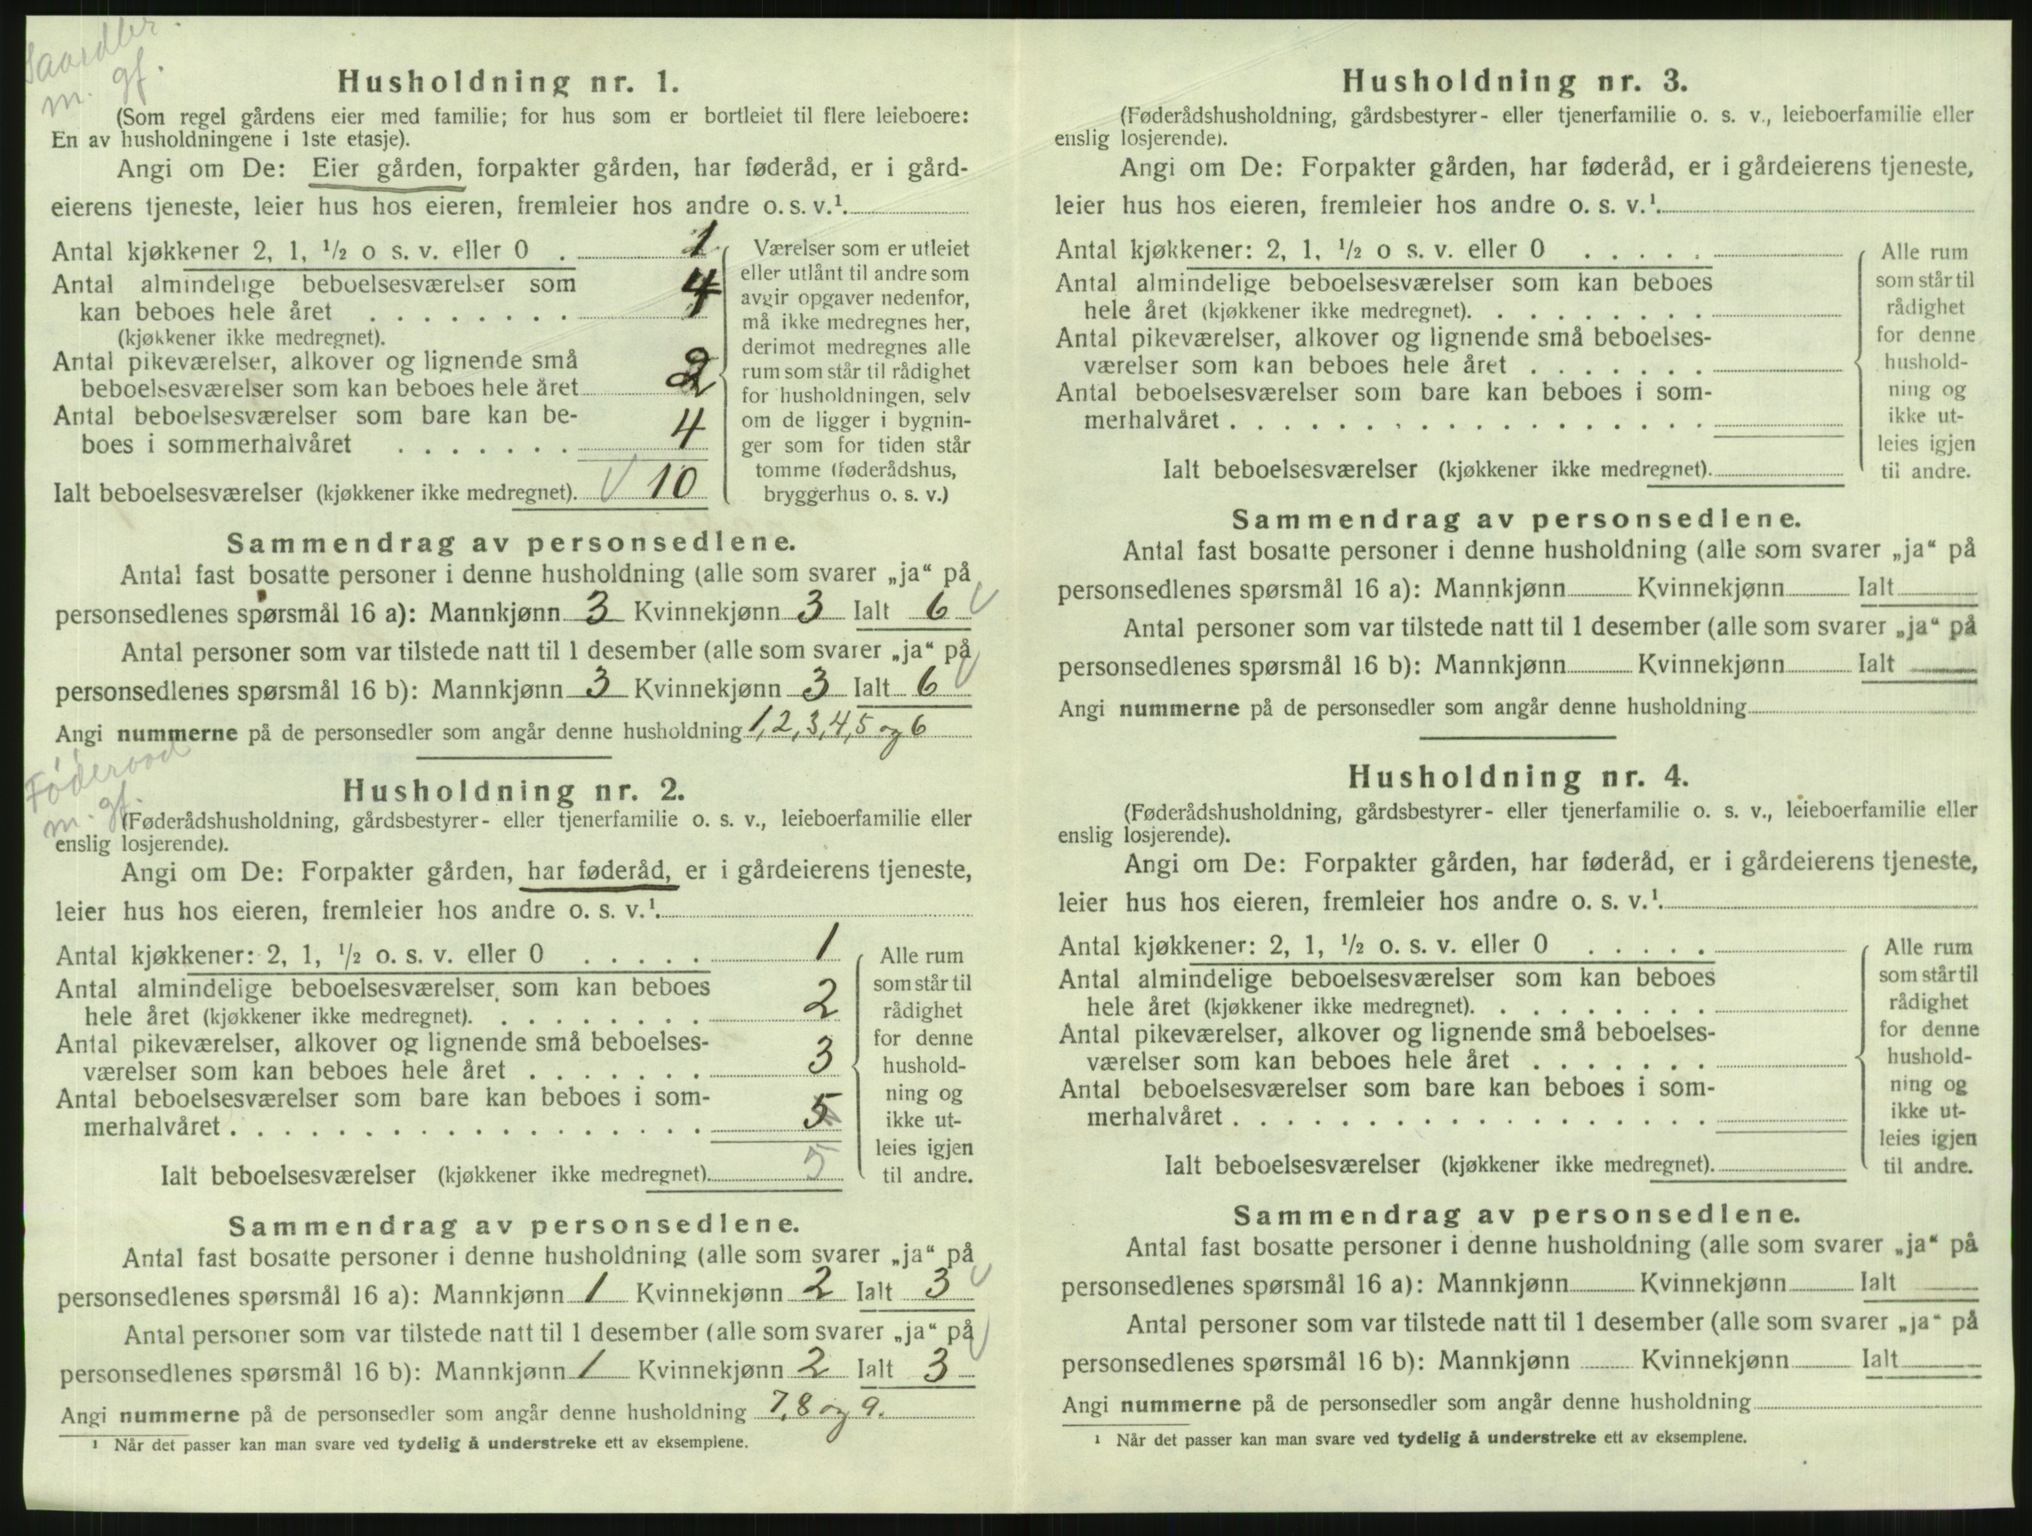 m. gf.
Husholdning nr. 1.
(Som regel gårdens eier med familie; for hus som er bortleiet til flere leieboere:
En av husholdningene i 1ste etasje).
Angi om De: Eier gården, forpakter gården, har føderåd, er i gård-
eierens tjeneste, leier hus hos eieren, fremleier hos andre o. s. v.¹.
Antal kjøkkener 2, 1, ½ o s. v. eller 0 . 1
Antal almindelige beboelsesværelser som
kan beboes hele året . . . . . . . . 4
(kjøkkener ikke medregnet).
Antal pikeværelser, alkover og lignende små
beboelsesværelser som kan beboes hele året 2
Antal beboelsesværelser som bare kan be-
boes i sommerhalvåret . . . . . . . 4
Ialt beboelsesværelser (kjøkkener ikke medregnet). √ 10
Værelser som er utleiet
eller utlånt til andre som
avgir opgaver nedenfor,
må ikke medregnes her,
derimot medregnes alle
rum som står til rådighet
for husholdningen, selv
om de ligger i bygnin-
ger som for tiden står
tomme (føderådshus,
bryggerhus o. s. v.)
Sammendrag av personsedlene.
Antal fast bosatte personer i denne husholdning (alle som svarer „ja“ på
personsedlenes spørsmål 16 a): Mannkjønn 3 Kvinnekjønn 3 Ialt 6 √
Antal personer som var tilstede natt til 1 desember (alle som svarer „ja“ på
personsedlenes spørsmål 16 b): Mannkjønn 3 Kvinnekjønn 3 Ialt 6 √
Angi nummerne på de personsedler som angår denne husholdning 1, 2, 3, 4, 5 og 6
Føderaad
m. gf.
Husholdning nr. 2.
(Føderådshusholdning, gårdsbestyrer- eller tjenerfamilie o. s. v., leieboerfamilie eller
enslig losjerende).
Angi om De: Forpakter gården, har føderåd, er i gårdeierens tjeneste,
leier hus hos eieren, fremleier hos andre o. s. v.¹.
Antal kjøkkener: 2, 1, ½ o. s. v. eller 0 . . . . . 1
Antal almindelige beboelsesværelser som kan beboes
hele året (kjøkkener ikke medregnet). . . . . . . . . 2
Antal pikeværelser, alkover og lignende små beboelses-
værelser som kan beboes hele året . . . . . . . 3
Antal beboelsesværelser som bare kan beboes i som-
merhalvåret . . . . . . . . . . . . . . . . . . 5
Ialt beboelsesværelser (kjøkkener ikke medregnet). 5
Alle rum
som står til
rådighet
for denne
hushold-
ning og
ikke ut-
leies igjen
til andre.
Sammendrag av personsedlene.
Antal fast bosatte personer i denne husholdning (alle som svarer „ja“ på
personsedlenes spørsmål 16 a): Mannkjønn 1 Kvinnekjønn 2 Ialt 3 √
Antal personer som var tilstede natt til 1 desember (alle som svarer „ja“ på
personsedlenes spørsmål 16 b): Mannkjønn 1 Kvinnekjønn 2 Ialt 3 √
Angi nummerne på de personsedler som angår denne husholdning 7, 8 og 9.
¹ Når det passer kan man svare ved tydelig å understreke ett av eksemplene.
Husholdning nr. 3.
(Føderådshusholdning, gårdsbestyrer- eller tjenerfamilie o. s. v., leieboerfamilie eller
enslig losjerende).
Angi om De: Forpakter gården, har føderåd, er i gårdeierens tjeneste,
leier hus hos eieren, fremleier hos andre o. s. v.¹.
Antal kjøkkener: 2, 1, ½ o s. v. eller 0 . . . . .
Antal almindelige beboelsesværelser som kan beboes
hele året (kjøkkener ikke medregnet). . . . . . . . .
Antal pikeværelser, alkover og lignende små beboelses-
værelser som kan beboes hele året . . . . . . .
Antal beboelsesværelser som bare kan beboes i som-
merhalvåret . . . . . . . . . . . . . . . . . .
Ialt beboelsesværelser (kjøkkener ikke medregnet).
Alle rum
som står til
rådighet
for denne
hushold-
ning og
ikke ut-
leies igjen
til andre.
Sammendrag av personsedlene.
Antal fast bosatte personer i denne husholdning (alle som svarer „ja“ på
personsedlenes spørsmål 16 a): Mannkjønn Kvinnekjønn Ialt
Antal personer som var tilstede natt til 1 desember (alle som svarer „ja“ på
personsedlenes spørsmål 16 b): Mannkjønn Kvinnekjønn Ialt
Angi nummerne på de personsedler som angår denne husholdning
Husholdning nr. 4.
(Føderådshusholdning, gårdsbestyrer- eller tjenerfamilie o. s. v., leieboerfamilie eller
enslig losjerende).
Angi om De: Forpakter gården, har føderåd, er i gårdeierens tjeneste,
leier hus hos eieren, fremleier hos andre o. s. v.¹.
Antal kjøkkener: 2, 1, ½ o. s. v. eller 0 . . . . .
Antal almindelige beboelsesværelser som kan beboes
hele året (kjøkkener ikke medregnet). . . . . . . . .
Antal pikeværelser, alkover og lignende små beboelses-
værelser som kan beboes hele året . . . . . . .
Antal beboelsesværelser som bare kan beboes i som-
merhalvåret . . . . . . . . . . . . . . . . . .
Ialt beboelsesværelser (kjøkkener ikke medregnet).
Alle rum
som står til
rådighet
for denne
hushold-
ning og
ikke ut-
leies igjen
til andre.
Sammendrag av personsedlene.
Antal fast bosatte personer i denne husholdning (alle som svarer „ja“ på
personsedlenes spørsmål 16 a): Mannkjønn Kvinnekjønn Ialt
Antal personer som var tilstede natt til 1 desember (alle som svarer „ja“ på
personsedlenes spørsmål 16 b): Mannkjønn Kvinnekjønn Ialt
Angi nummerne på de personsedler som angår denne husholdning
¹ Når det passer kan man svare ved tydelig å understreke ett av eksemplene.